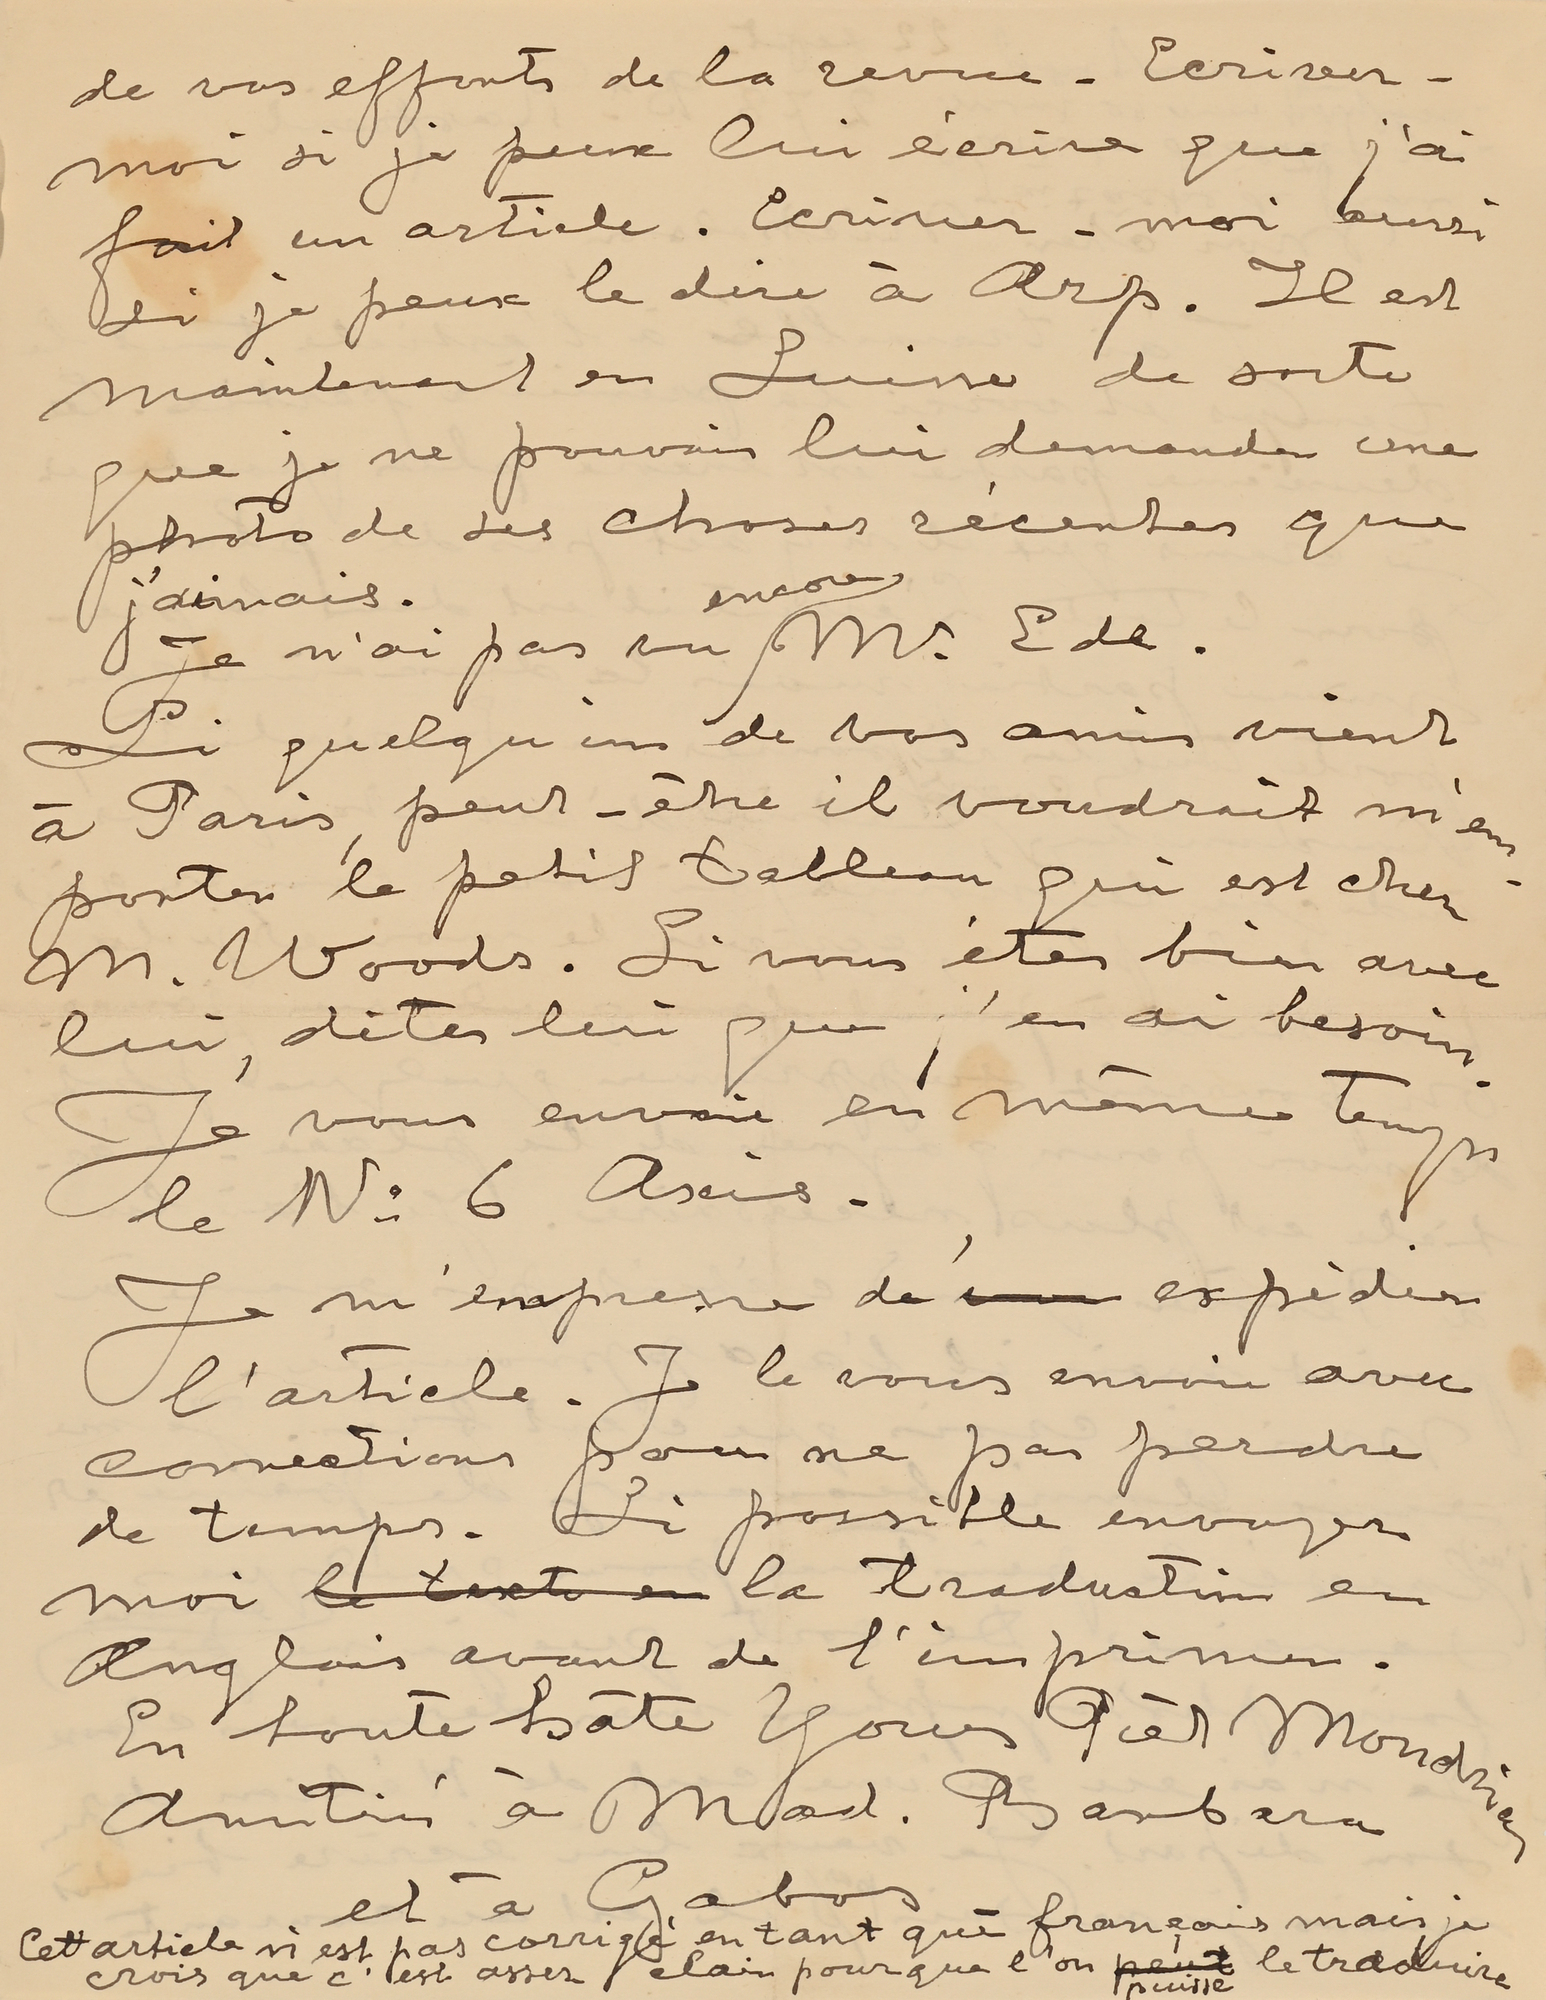 de vos efforts de la revue - Ecrivez-
moi si je peux lui écrire que j'ai
fait un article. Ecrivez-moi aussi
si je peux le dire à Arp. Il est
maintenant en Suisse de sorte
que je ne pouvais lui demander une
photo de ses choses récentes que
j'aimais.
Je n'ai pas vu encore Mr. Ede.
Si quelqu'un de vos amis vient
à Paris, peut-être il voudrait m'em-
porter le petit tableau qui est chez
M. Woods. Si vous êtes bien avec
lui, dites lui que j'en ai besoin.
Je vous envoie en même temps
le No 6 Axis.
Je m'empresse de expédier
l'article. Je le vous envoie avec
corrections pour ne pas perdre
de temps. Si possible envoyer
moi le texte en la traduction en
Anglais avant de l'imprimer.
En toute hâte Yours Piet Mondrian
Amitié à Mad. Barbara
et à Gabos
Cett article n'est pas corrigé en tant que français mais je
crois que c'est assez clair pour que l'on peut puisse le traduire